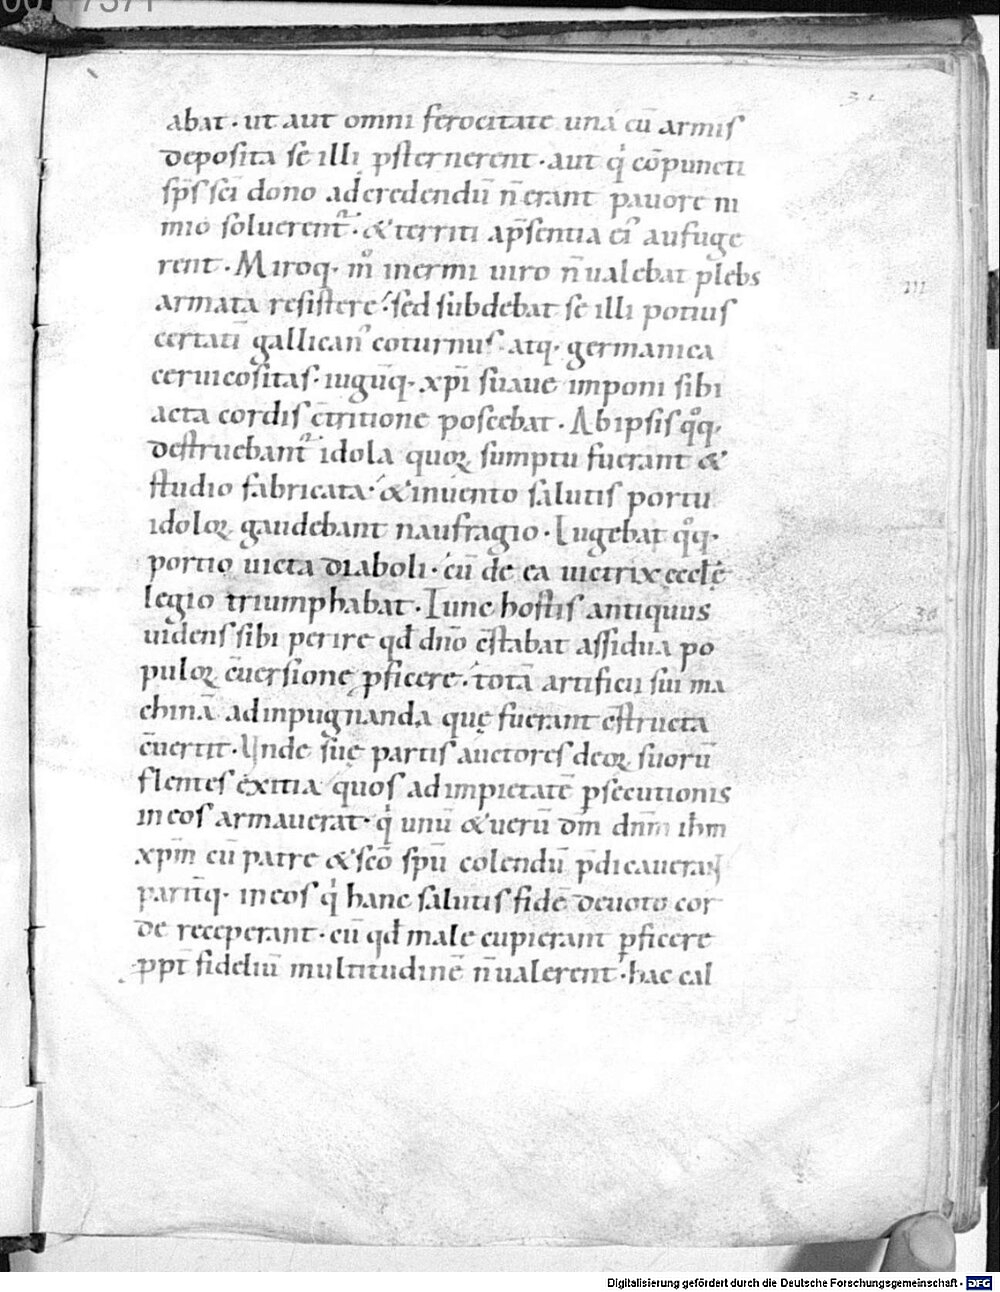 abat · ut aut omni ferocitate una cū armis
deposita se illi ꝓsternerent · aut q̇ cōpuncti
sp̄s sc̄i dono ad credendū n̄ erant pauore ni
mio soluerent᷑ · & territi ap̄sentia ei᷒ aufuge
rent · Miroq · m̊ inermi uiro n̄ ualebat plebs
armata resistere · sed subdebat se illi potius
certatī gallican᷒ coturnus · atq · germanica
ceruicositas · iugūq · xp̄i suaue imponi sibi
acta cordis c̄tritione poscebat · Ab ipsis qͦq ·
destruebant᷑ idola quoꝝ sumptu fuerant &
studio fabricata · & inuento salutis portu
idoloꝝ gaudebant naufragio · Lugebat qͦq ·
portio uicta diaboli · cū de ea uictrix eccl̄ę
legio triumphabat · Tunc hostis antiquus
uidens sibi perire qđ dn̄o c̄stabat assidua po
puloꝝ c̄uersione ꝓficere · totā artificii sui ma
chinā ad inpugnanda quę fuerant c̄structa
c̄uertit · Unde suę partis auctores deoꝝ suorū
flentes exitia quos ad impietatē ꝑsecutionis
in eos armauerat · q̇ unū & uerū dm̄ dn̄m ihm̄
xp̄m cū patre & sc̄o sp̄u colendū p̄dicauerant
paritq̄ · in eos q̇ hanc salutis fidē deuoto cor
de receperant · cū qđ male cupierant ꝑficere
ꝓpt̄ fideliū multitudinē n̄ ualerent · hac cal
III
Digitalisierung gefördert durch die Deutsche Forschungsgemeinschaft · DFG